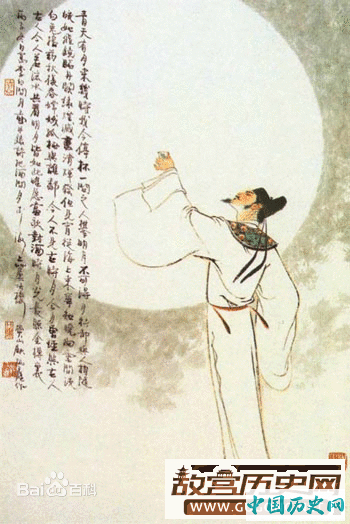 青天有月來幾時我今停杯一問之人攀明月不可得月行卻與人相隨
皎如飛鏡臨丹闕綠煙滅盡清輝發但見宵從海上來寧知曉向雲間沒
白兔搗藥秋復春嫦娥孤棲與誰鄰今人不見古時月今月曾經照古人
古人今人若流水共看明月皆如此唯願當歌對酒時月光長照金樽裏
Bai百科
故宫历史网
中国历史网